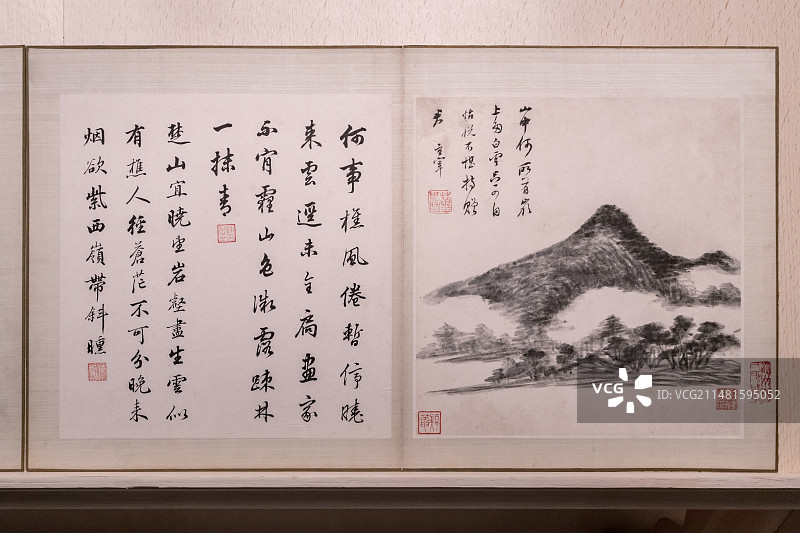 山中何所有嶺
上多白雲只可自
怡悅不堪持贈
君 玄宰
何事樵風倦暫停曉
来雲還未全扃畫家
不肯霾山色微露疎林
一抹青
楚山宜曉望岩壑盡生雲似
有樵人徑蒼茫不可分晚来
烟欲紫西嶺帶斜曛
VCG
视觉中国
VCG.COM
ID: VCG211481595052